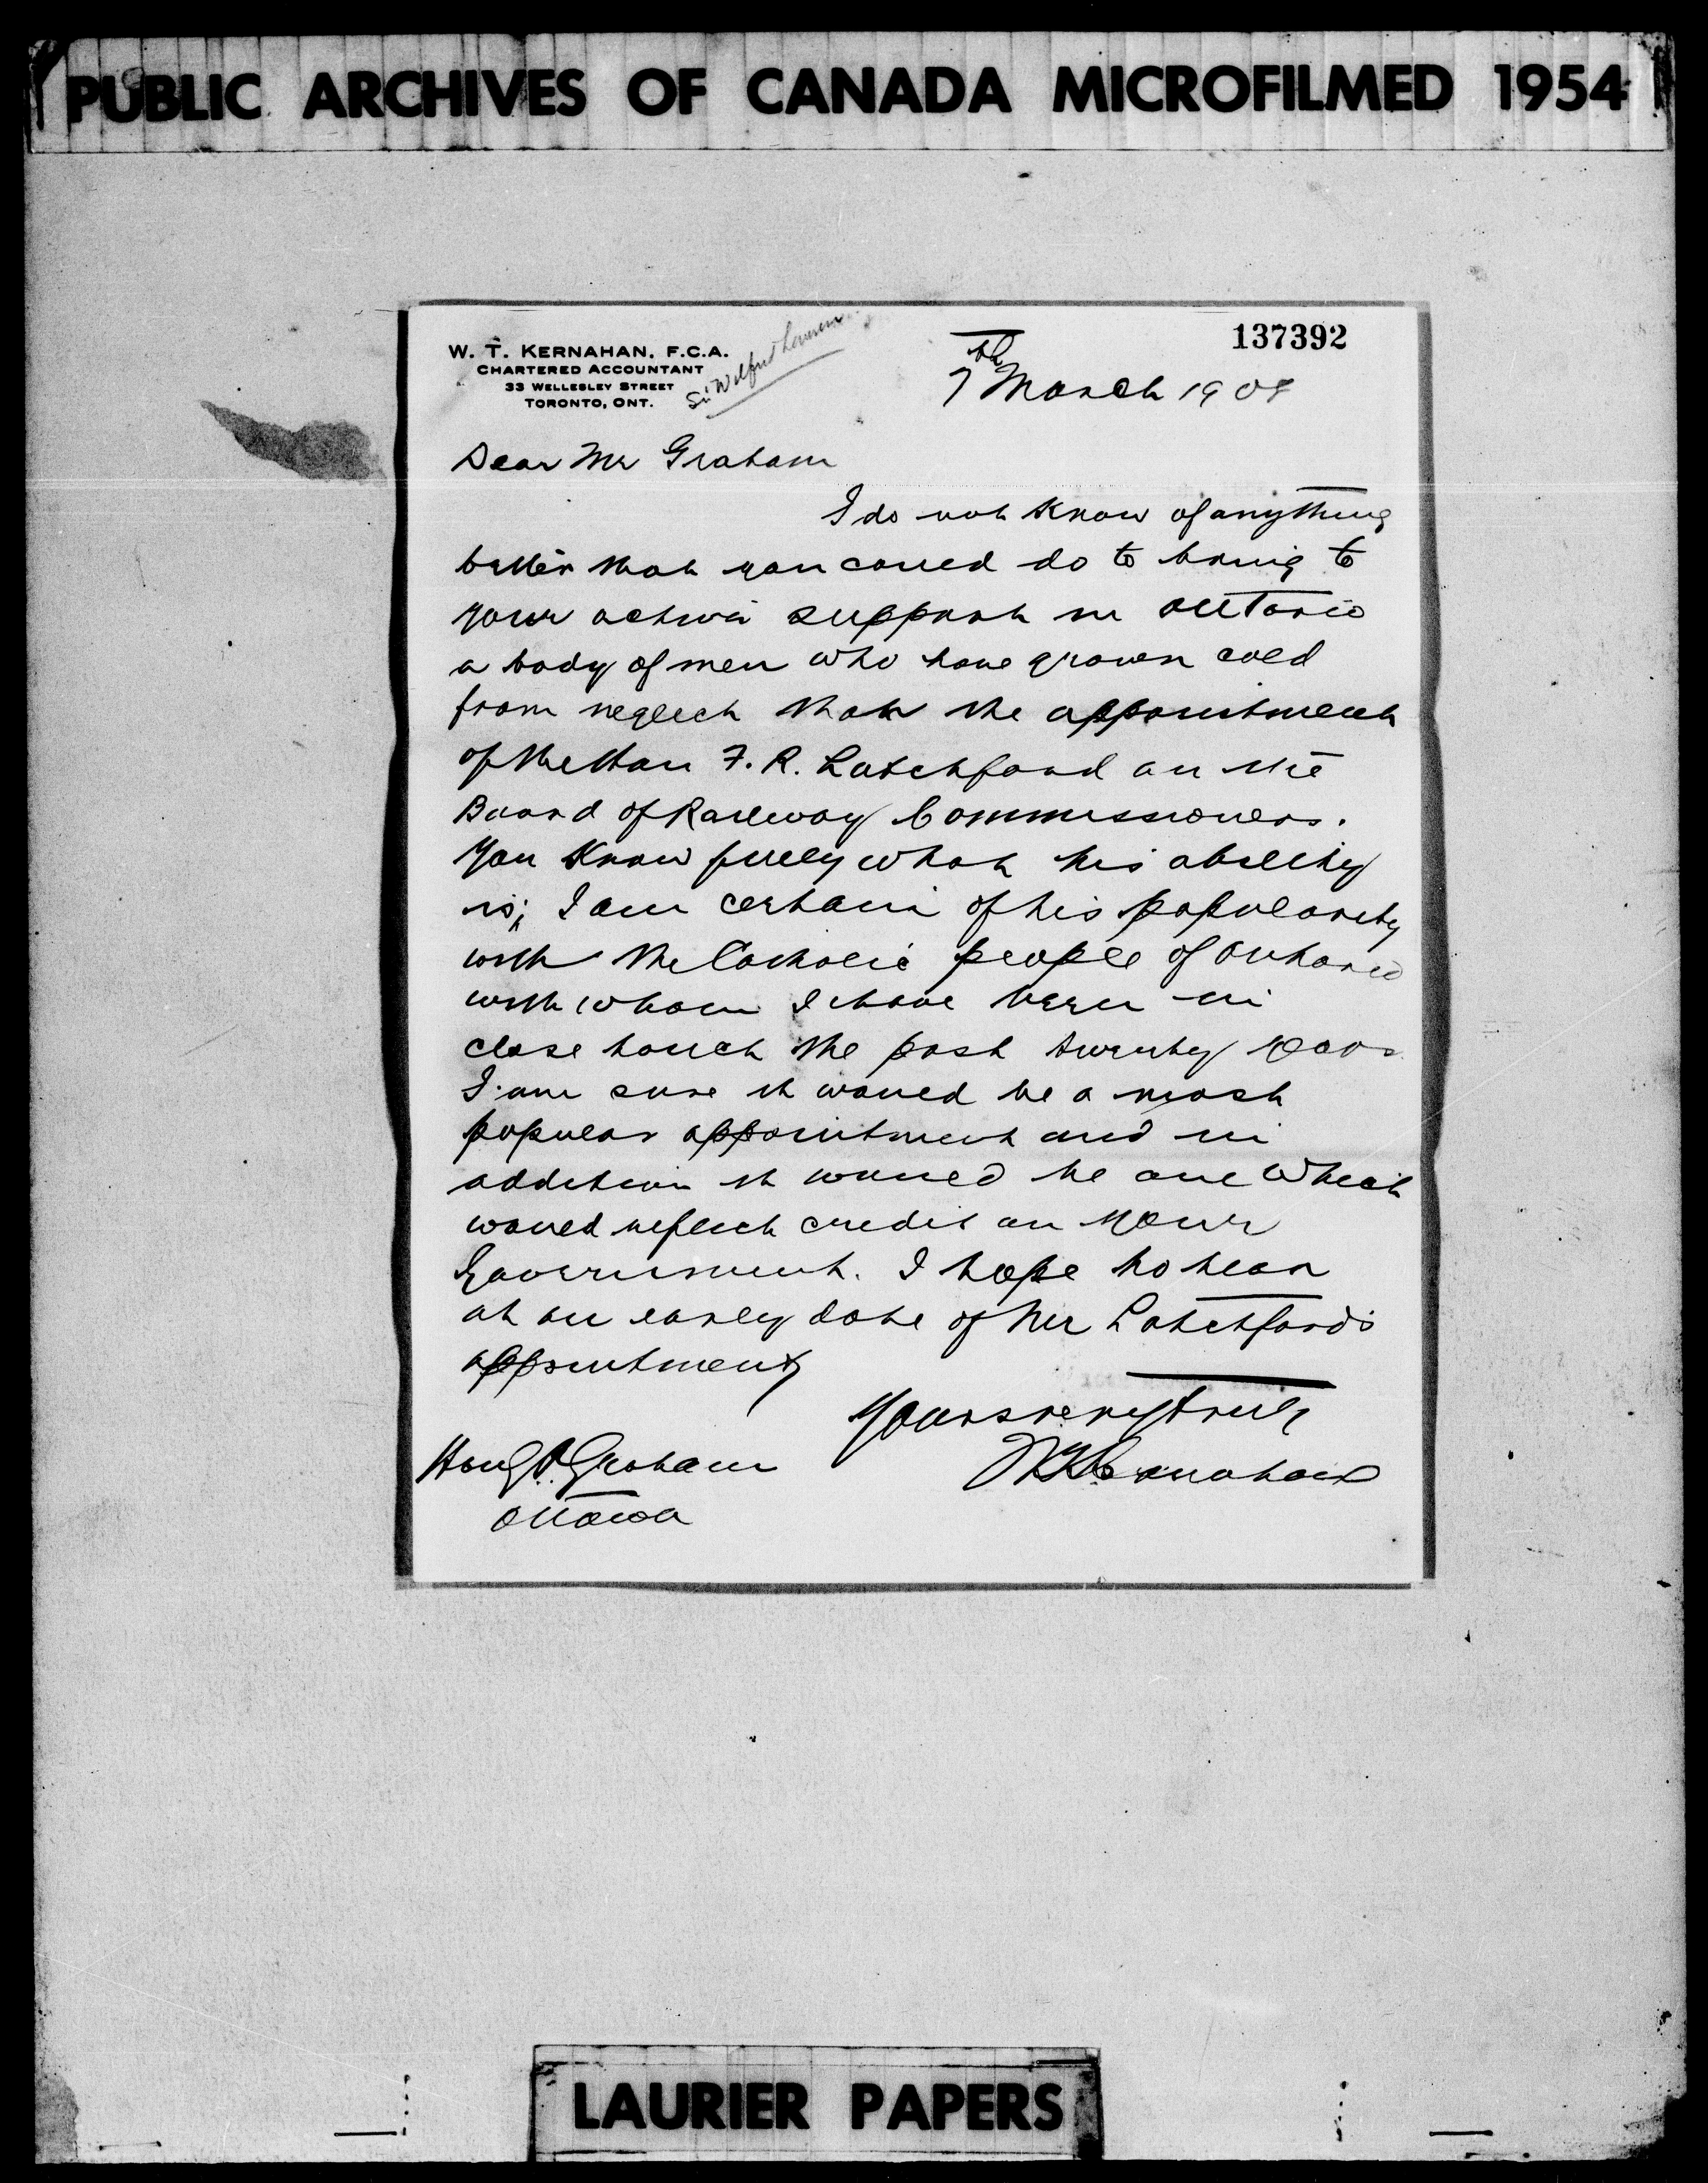 PUBLIC ARCHIVES OF CANADA MICROFILMED 1954
137392
W. T. KERNAHAN, F.C.A.
CHARTERED ACCOUNTANT
33 WELLESLEY STREET
TORONTO, ONT.
Sir Wilfrid
7th March 190
Dear Mr Graham
I do not know of anything
better that you could do to bring to
your active support in Ontario
a body of men who have grown cold
from neglect than the appointment
of the Hon F. R. Latchford on the
Board of Railway Commissioners.
You know fully what his ability
is; I am certain of his popularity
with the Catholic people of Ontario
with whom I have been in
close touch the past twenty years
I am sure it would be a most
popular appointment and in
addition it would be one which
would reflect credit on your
Government. I hope to hear
at an early date of Mr Latchford's
appointment
Yours very truly
W T Kernahan
Hon G. P. Graham
Ottawa
LAURIER PAPERS